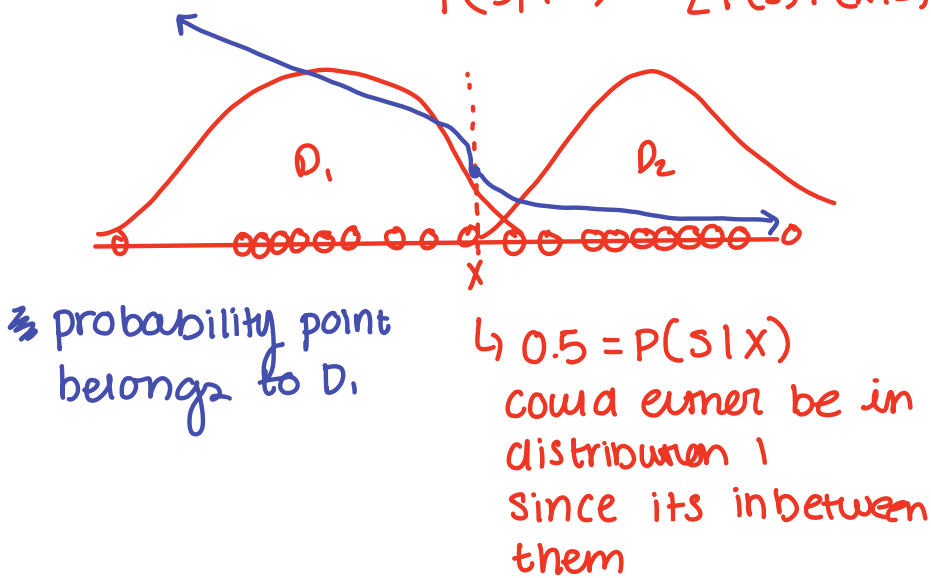 D₁
D₂
X
probability point
belongs to D₁
↳ 0.5 = P(S|X)
could either be in
distribution 1
since its inbetween
them